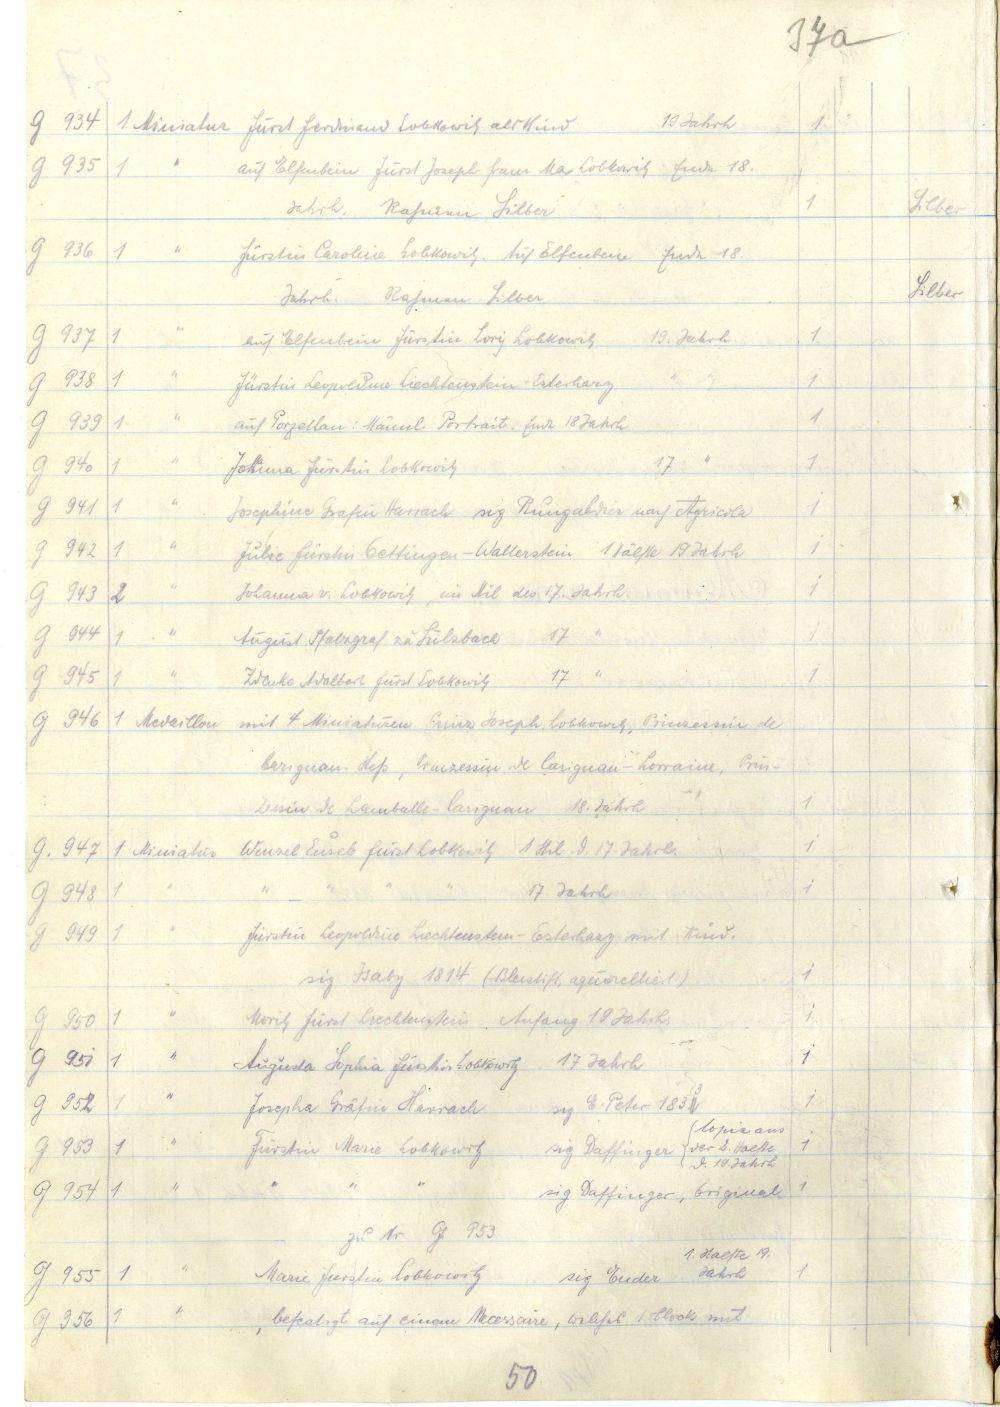 37a
G 934 1 Miniatur Fürst Ferdinand Lobkowitz als Kind 19 Jahrh 1
G 935 1 " auf Elfenbein Fürst Joseph Franz Max Lobkowitz Ende 18.
Jahrh. Rahmen Silber 1 Silber
G 936 1 " Fürstin Caroline Lobkowitz. Auf Elfenbein Ende 18.
Jahrh. Rahmen Silber Silber
G 937 1 " auf Elfenbein Fürstin Lori Lobkowitz 19. Jahrh 1
G 938 1 " Fürstin Leopoldine Liechtenstein-Esterhazy " " 1
G 939 1 " auf Porzellan: Männl. Portrait. Ende 18 Jahrh 1
G 940 1 " Johanna Fürstin Lobkowitz 17 " 1
G 941 1 " Josephine Gräfin Harrach sig Rungaldier nach Agricola 1
G 942 1 " Julie Fürstin Oettingen-Wallerstein 1 Hälfte 19 Jahrh 1
G 943 2 " Johanna v. Lobkowitz, im Stil des 17. Jahrh 1
G 944 1 " August Pfalzgraf zu Sulzbach 17 " 1
G 945 1 " Zdenko Adalbert Fürst Lobkowitz 17 " 1
G 946 1 Medaillon mit 4 Miniaturen Prinz Joseph Lobkowitz, Prinzessin de
Carignan-Heß, Prinzessin de Carignan-Lorraine, Prin-
zessin de Lamballe-Carignan 18. Jahrh 1
G. 947 1 Miniatur Wenzel Euseb Fürst Lobkowitz 1 Htl. d. 17 Jahrh. 1
G 948 1 " " " " " 17 Jahrh 1
G 949 1 " Fürstin Leopoldine Liechtenstein-Esterhazy mit Kind.
sig Isaby 1814 (Bleistift, aquarelliert) 1
G 950 1 " Moritz Fürst Liechtenstein Anfang 19 Jahrh 1
G 951 1 " Augusta Sophia Fürstin Lobkowitz 17 Jahrh 1
G 952 1 " Josepha Gräfin Harrach sig E. Peter 1832 3 1
G 953 1 " Fürstin Marie Lobkowitz sig Daffinger (Copie aus
der 2. Haelfte 1
d. 19. Jahrh
G 954 1 " " " " sig Daffinger, Original 1
zu Nr G 953
G 955 1 " Marie Fürstin Lobkowitz sig Ender 1. Haelfte 19.
Jahrh 1
G 956 1 " , befestigt auf einem Necessaire, welches 1 Block mit
50